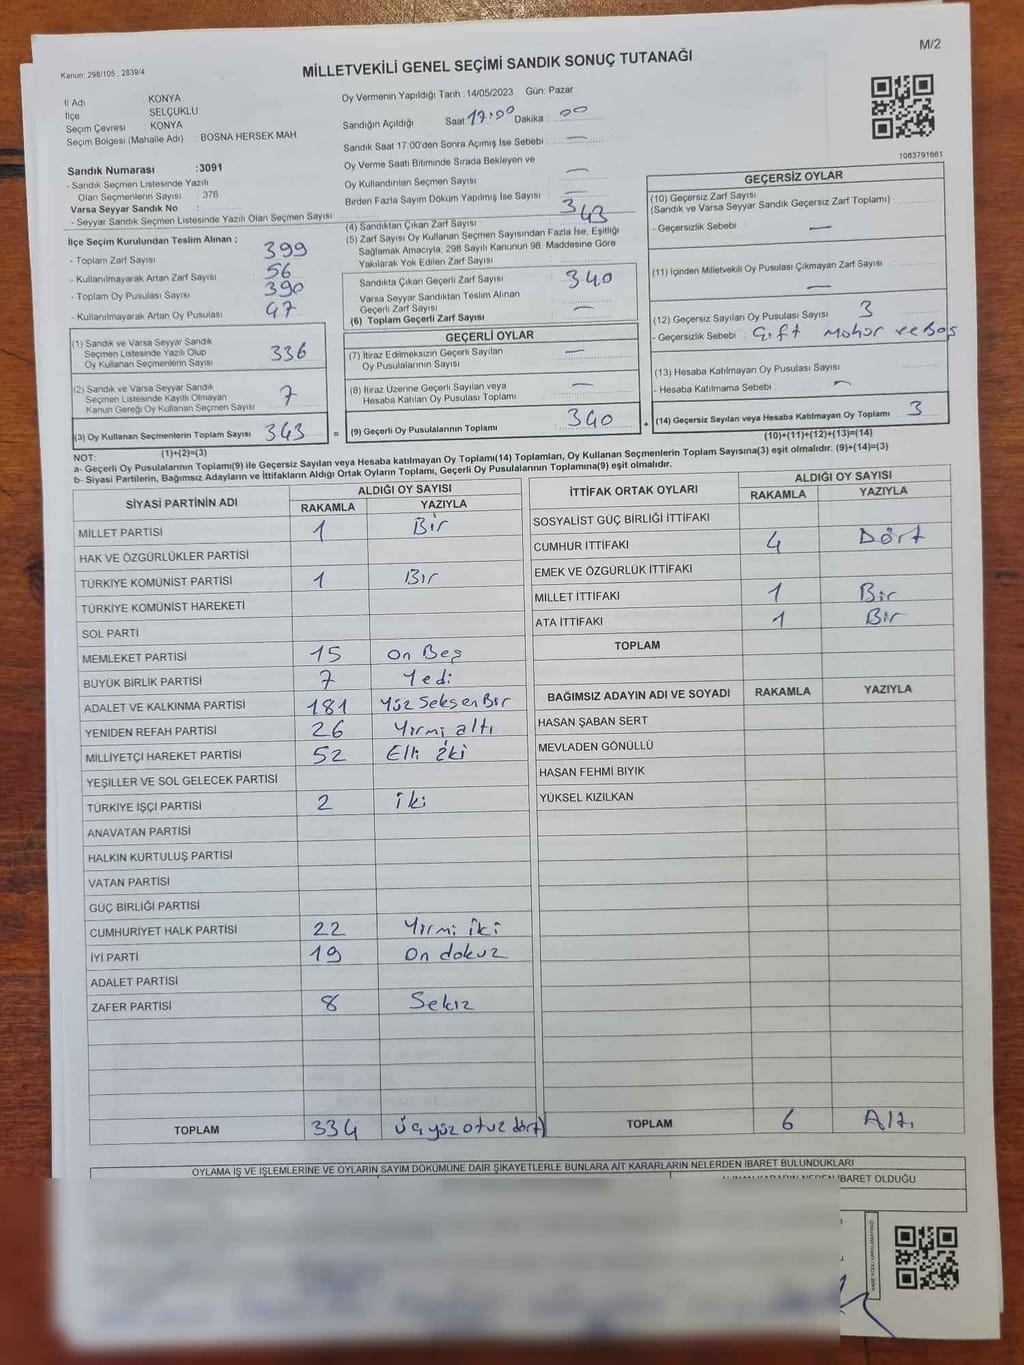 M/2
Kanun: 298/105 , 2839/4
MİLLETVEKİLİ GENEL SEÇİMİ SANDIK SONUÇ TUTANAĞI
İl Adı : KONYA
İlçe : SELÇUKLU
Seçim Çevresi : KONYA
Seçim Bölgesi (Mahalle Adı) BOSNA HERSEK MAH
Sandık Numarası :3091
- Sandık Seçmen Listesinde Yazılı
Olan Seçmenlerin Sayısı : 376
Varsa Seyyar Sandık No :
- Seyyar Sandık Seçmen Listesinde Yazılı Olan Seçmen Sayısı :
Oy Vermenin Yapıldığı Tarih :14/05/2023 Gün: Pazar
Sandığın Açıldığı Saat 17:00 Dakika : 00
Sandık Saat 17.00'den Sonra Açımış İse Sebebi : —
Oy Verme Saati Bitiminde Sırada Bekleyen ve
Oy Kullandırılan Seçmen Sayısı : —
Birden Fazla Sayım Döküm Yapılmış İse Sayısı : —
1083791661
İlçe Seçim Kurulundan Teslim Alınan ;
- Toplam Zarf Sayısı : 399
- Kullanılmayarak Artan Zarf Sayısı : 56
- Toplam Oy Pusulası Sayısı : 390
- Kullanılmayarak Artan Oy Pusulası : 47
(1) Sandık ve Varsa Seyyar Sandık
Seçmen Listesinde Yazılı Olup
Oy Kullanan Seçmenlerin Sayısı : 336
(2) Sandık ve Varsa Seyyar Sandık
Seçmen Listesinde Kayıtlı Olmayan
Kanun Gereği Oy Kullanan Seçmen Sayısı : 7
(3) Oy Kullanan Seçmenlerin Toplam Sayısı : 343
(1)+(2)=(3)
(4) Sandıktan Çıkan Zarf Sayısı : 343
(5) Zarf Sayısı Oy Kullanan Seçmen Sayısından Fazla İse, Eşitliği
Sağlamak Amacıyla, 298 Sayılı Kanunun 98. Maddesine Göre
Yakılarak Yok Edilen Zarf Sayısı :
Sandıkta Çıkan Geçerli Zarf Sayısı : 340
Varsa Seyyar Sandıktan Teslim Alınan
Geçerli Zarf Sayısı : —
(6) Toplam Geçerli Zarf Sayısı :
GEÇERLİ OYLAR
(7) İtiraz Edilmeksizin Geçerli Sayılan
Oy Pusulalarının Sayısı : —
(8) İtiraz Üzerine Geçerli Sayılan veya
Hesaba Katılan Oy Pusulası Toplamı : —
= (9) Geçerli Oy Pusulalarının Toplamı : 340 +
GEÇERSİZ OYLAR
(10) Geçersiz Zarf Sayısı
(Sandık ve Varsa Seyyar Sandık Geçersiz Zarf Toplamı) :
- Geçersizlik Sebebi : —
(11) İçinden Milletvekili Oy Pusulası Çıkmayan Zarf Sayısı : —
(12) Geçersiz Sayılan Oy Pusulası Sayısı : 3
- Geçersizlik Sebebi : Çift Mohür ve Boş
(13) Hesaba Katılmayan Oy Pusulası Sayısı :
- Hesaba Katılmama Sebebi : —
(14) Geçersiz Sayılan veya Hesaba Katılmayan Oy Toplamı : 3
(10)+(11)+(12)+(13)=(14)
NOT:
a- Geçerli Oy Pusulalarının Toplamı(9) ile Geçersiz Sayılan veya Hesaba katılmayan Oy Toplamı(14) Toplamları, Oy Kullanan Seçmenlerin Toplam Sayısına(3) eşit olmalıdır. (9)+(14)=(3)
b- Siyasi Partilerin, Bağımsız Adayların ve İttifakların Aldığı Ortak Oyların Toplamı, Geçerli Oy Pusulalarının Toplamına(9) eşit olmalıdır.
SİYASİ PARTİNİN ADI ALDIĞI OY SAYISI
RAKAMLA YAZIYLA
MİLLET PARTİSİ 1 Bir
HAK VE ÖZGÜRLÜKLER PARTİSİ
TÜRKİYE KOMÜNİST PARTİSİ 1 Bir
TÜRKİYE KOMÜNİST HAREKETİ
SOL PARTİ
MEMLEKET PARTİSİ 15 on Beş
BÜYÜK BİRLİK PARTİSİ 7 Yedi
ADALET VE KALKINMA PARTİSİ 181 Yüz Seksen Bir
YENİDEN REFAH PARTİSİ 26 Yirmi altı
MİLLİYETÇİ HAREKET PARTİSİ 52 Elli iki
YEŞİLLER VE SOL GELECEK PARTİSİ
TÜRKİYE İŞÇİ PARTİSİ 2 iki
ANAVATAN PARTİSİ
HALKIN KURTULUŞ PARTİSİ
VATAN PARTİSİ
GÜÇ BİRLİĞİ PARTİSİ
CUMHURİYET HALK PARTİSİ 22 Yirmi iki
İYİ PARTİ 19 On dokuz
ADALET PARTİSİ
ZAFER PARTİSİ 8 Sekiz
TOPLAM 334 üçyüz otuz dört
İTTİFAK ORTAK OYLARI ALDIĞI OY SAYISI
RAKAMLA YAZIYLA
SOSYALİST GÜÇ BİRLİĞİ İTTİFAKI
CUMHUR İTTİFAKI 4 Dört
EMEK VE ÖZGÜRLÜK İTTİFAKI
MİLLET İTTİFAKI 1 Bir
ATA İTTİFAKI 1 Bir
TOPLAM
BAĞIMSIZ ADAYIN ADI VE SOYADI RAKAMLA YAZIYLA
HASAN ŞABAN SERT
MEVLADEN GÖNÜLLÜ
HASAN FEHMİ BIYIK
YÜKSEL KIZILKAN
TOPLAM 6 Altı
OYLAMA İŞ VE İŞLEMLERİNE VE OYLARIN SAYIM DÖKÜMÜNE DAİR ŞİKAYETLERLE BUNLARA AİT KARARLARIN NELERDEN İBARET BULUNDUKLARI
ALINAN KARARIN NEDEN İBARET OLDUĞU